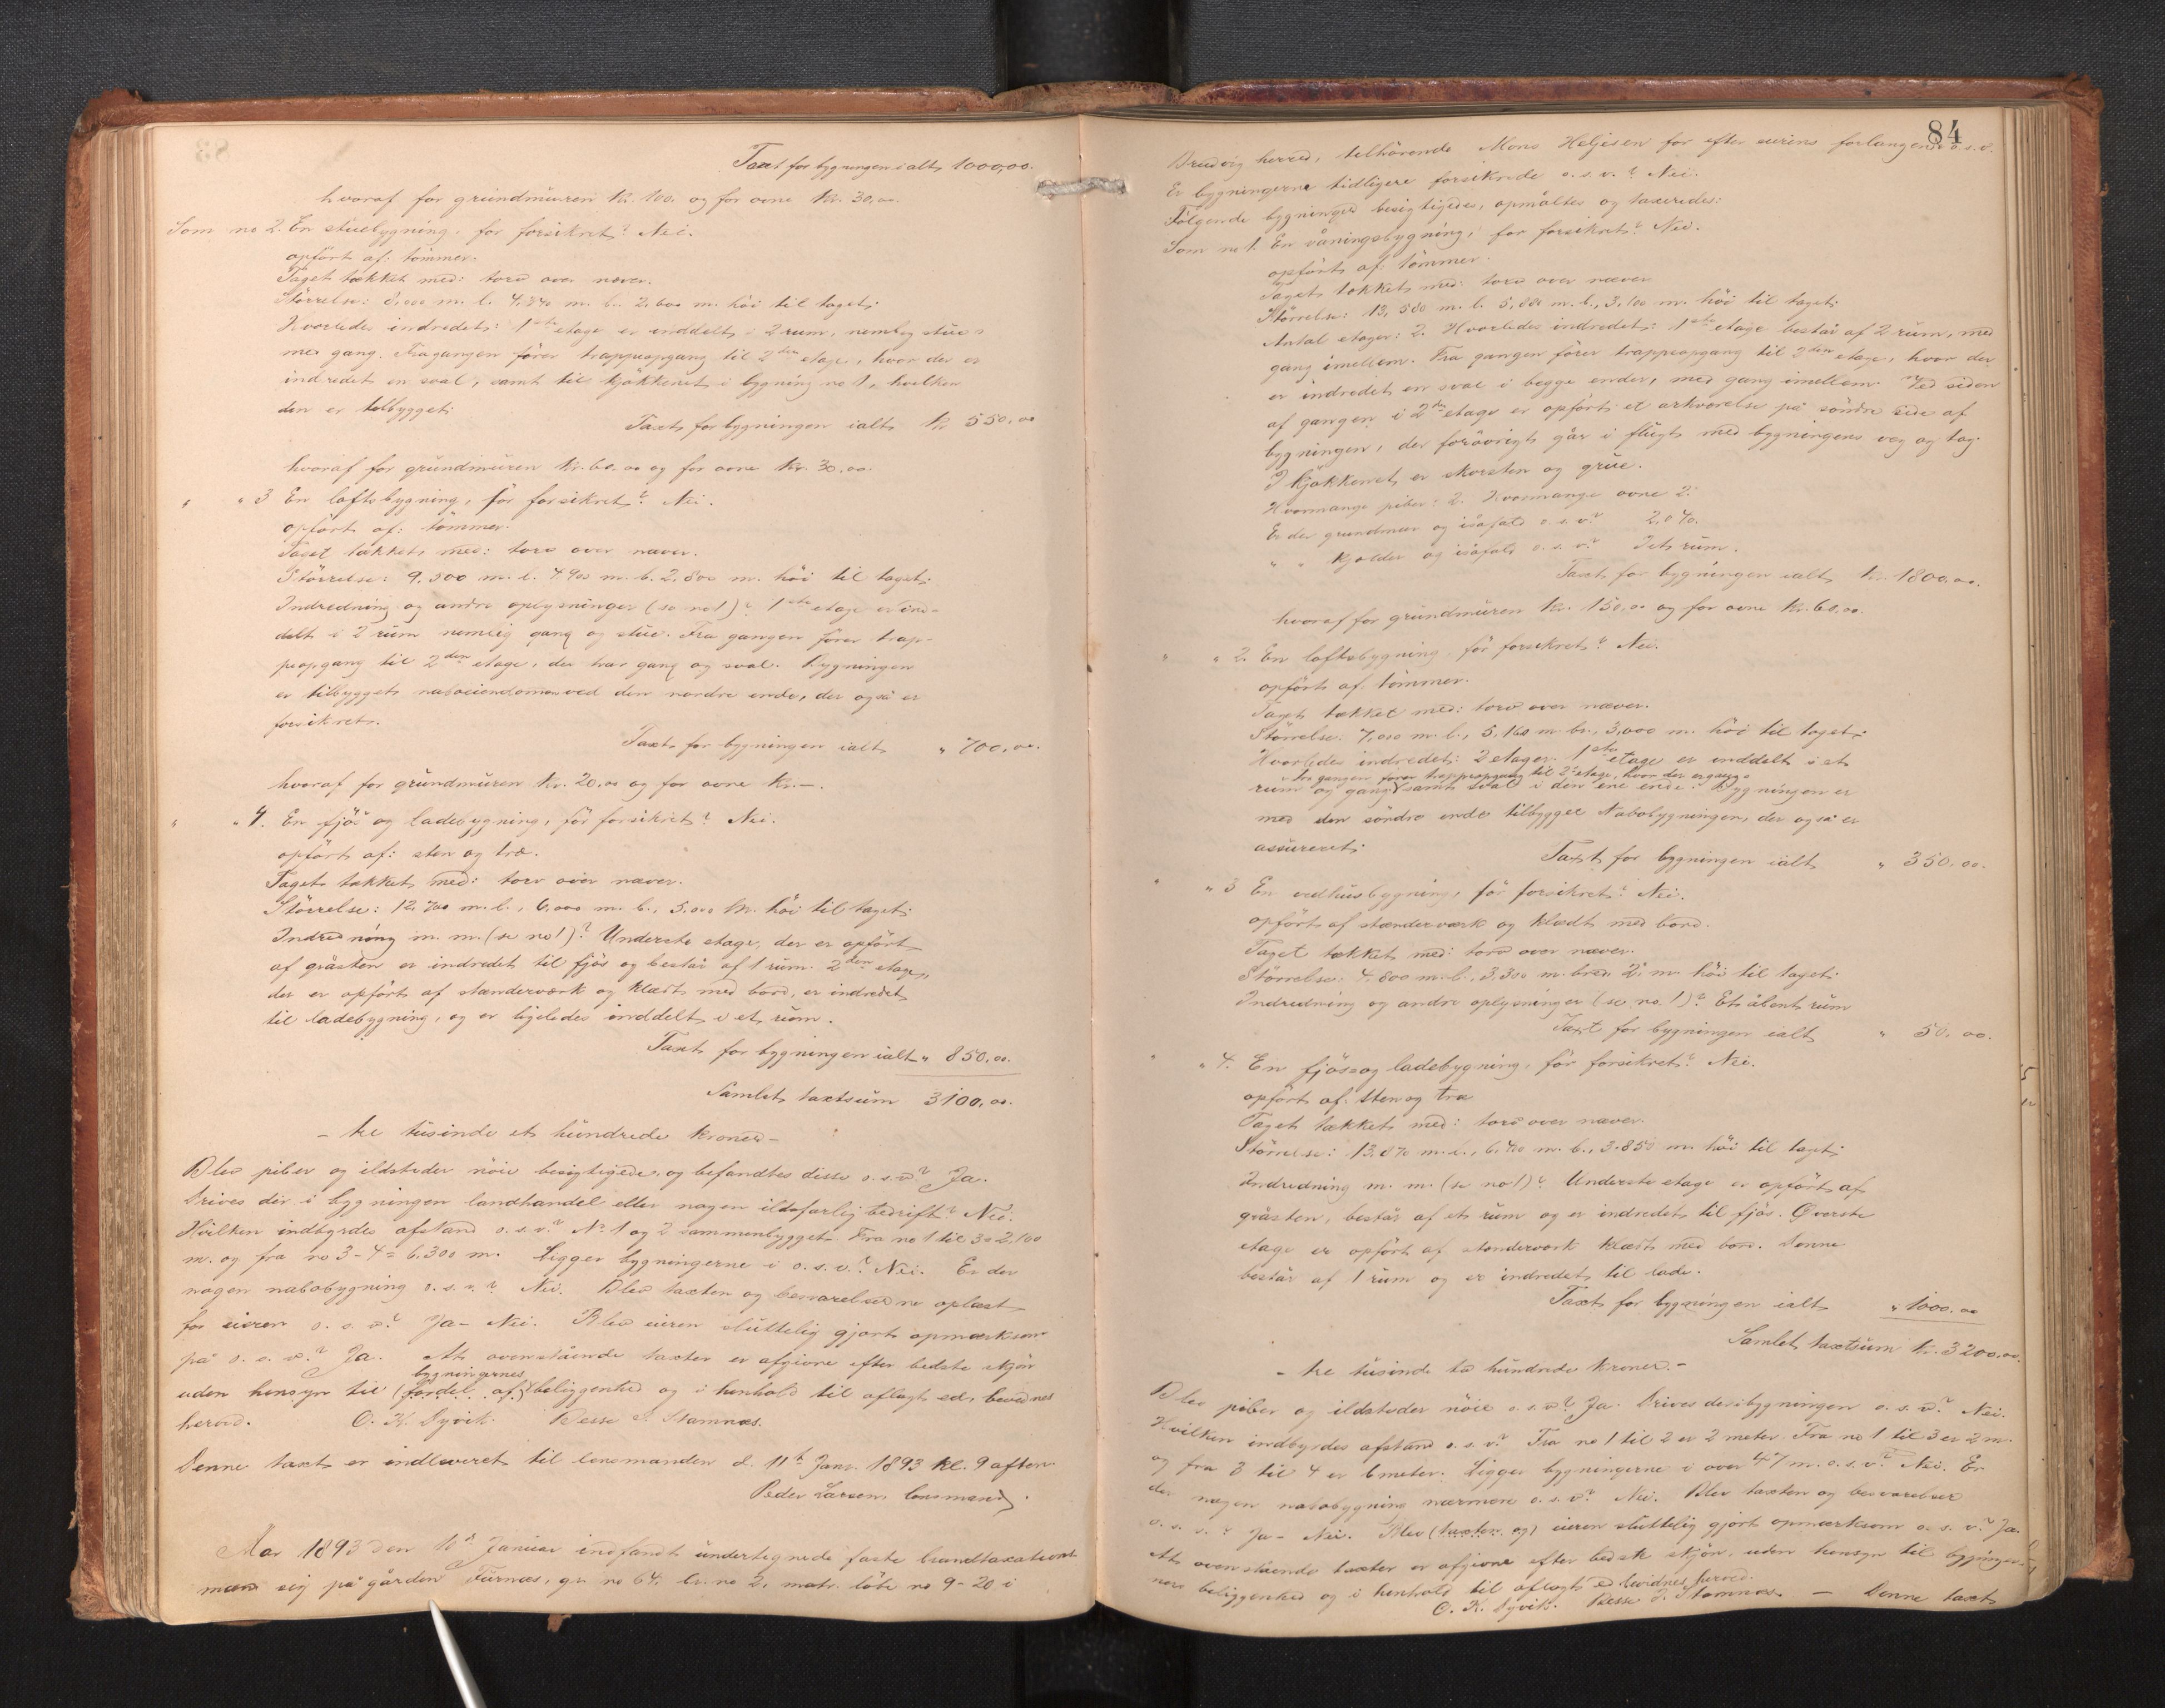 Taxt for bygningen ialt 1000,00.
hvoraf for grundmuren kr. 100. og for ovne kr. 30,00.
Som no 2. En stuebygning. før forsikret? Nei.
opført af: tømmer.
Taget tækket med: torv over næver.
Størrelse: 8,000 m. l. 4,840 m. b. 2,600 m. höi til taget.
Hvorledes indredet: 1ste etage er inddelt i 2 rum, nemlig stue
med gang. Fra gangen fører trappeopgang til 2den etage, hvor der er
indredet en sval, samt til kjøkkenet i bygning no 1, hvilken
den er tilbygget.
Taxt for bygningen ialt kr. 550,00
hvoraf for grundmuren kr. 60,00 og for ovne kr. 30,00.
" " 3 En loftsbygning, før forsikret? Nei.
opført af: tømmer.
Taget tækket med: torv over næver.
Størrelse: 9,500 m. l. 4.900 m. b. 2,800 m. höi til taget.
Indredning og andre oplysninger (se no 1)? 1ste etage er ind-
delt i 2 rum nemlig gang og stue. Fra gangen fører trap-
peopgang til 2den etage, der har gang og sval. Bygningen
er tilbygget naboeiendommen ved den nordre ende, der også er
forsikret.
Taxt for bygningen ialt " 700,00.
hvoraf for grundmuren kr. 20,00 og for ovne kr. —.
" " 4. En fjös og ladebygning, før forsikret? Nei.
opført af: sten og træ.
Taget tækket med: torv over næver.
Størrelse: 12,700 m. l., 6,000 m. b., 5,000 m. höi til taget.
Indredning m. m. (se no 1)? Underste etage, der er opført
af gråsten er indredet til fjös og består af 1 rum. 2den etage,
der er opført af stænderværk og klædt med bord, er indredet
til ladebygning, og er ligeledes inddelt i et rum.
Taxt for bygningen ialt " 850,00.
Samlet taxtsum 3100,00.
– tre tusinde et hundrede kroner –
Blev piber og ildsteder nöie besigtigede, og befandtes disse o. s. v? Ja.
Drives der i bygningen landhandel eller nogen ildsfarlig bedrift? Nei.
Hvilken indbyrdes afstand o. s. v? No 1 og 2 sammenbygget. Fra no 1 til 3 = 2,100
m. og fra no 3 – 4 = 6.300 m. Ligger bygningerne i o. s. v.? Nei. Er der
nogen nabobygning o. s. v.? Nei. Blev taxten og besvarelserne oplæst
for eieren o. s. v? Ja – Nei. Blev eieren sluttelig gjort opmærksom
på o. s. v.? Ja. At ovenstående taxter er afgivne efter bedste skjön
bygningernes
uden hensyn til (fordel af) beliggenhed og i henhold til aflagt ed, bevidnes
herved. O. K. Dyvik. Besse P. Stamnæs.
Denne taxt er indleveret til lensmanden d. 11te Janr. 1893 kl. 9 aften
Peder Larsen, lensmand.
Aar 1893 den 10d Januar indfandt undertegnede faste brandtaxations
mænd sig på gården Furnæs, gr. no 64, br. no 2, matr. löbe no 9-20 i
84
Bruvig herred, tilhörende Mons Heljesen for efter eierens forlangende o. s. v.
Er bygningerne tidligere forsikrede o. s. v.? Nei.
Følgende bygninger besigtigedes, opmåltes og taxeredes:
Som no 1. En våningsbygning, før forsikret? Nei.
opført af: tömmer.
Taget tækket med: torv over næver
Størrelse: 13,580 m. l. 5,880 m. b., 3,100 m. höi til taget.
Antal etager: 2. Hvorledes indredet: 1ste etage består af 2 rum, med
gang imellem. Fra gangen fører trappeopgang til 2den etage, hvor der
er indredet en sval i begge ender, med gang imellem. Ved siden
af gangen i 2den etage er opført et arkværelse på söndre side af
bygningen, der forövrigt går i flugt med bygningens væg og tag.
I kjøkkenet er skorsten og grue.
Hvormange piber: 2. Hvormange ovne 2.
Er der grundmur og isåfald o. s. v? 2,040.
" " kjælder og isåfald o. s. v? I et rum.
Taxt for bygningen ialt kr. 1800,00.
hvoraf for grundmuren kr. 150,00 og for ovne kr. 60,00.
" " 2. En loftsbygning. før forsikret? Nei.
opført af: tömmer.
Taget tækket med: torv over næver.
Størrelse: 7,000 m. l., 5,160 m. br., 3,000 m. höi til taget.
Hvorledes indredet: 2 etager. 1ste etage er inddelt i et
Fra gangen fører trappeopgang til 2d etage, hvor der er gang
rum og gang samt sval i den ene ende. Bygningen er
med den söndre ende tilbygget Nabobygningen, der også er
assureret.
Taxt for bygningen ialt " 350,00.
" " 3 En vedhusbygning, før forsikret? Nei.
opført af stænderværk og klædt med bord.
Taget tækket med: torv over næver.
Størrelse: 4.800 m. l., 3,300 m. bred 2, m. höi til taget.
Indredning og andre oplysninger (se no. 1)? Et åbent rum
Taxt for bygningen ialt " 50,00.
" " 4. En fjös og ladebygning, før forsikret? Nei.
opført af: sten og træ
Taget tækket med: torv over næver.
Størrelse: 13,070 m. l., 6,400 m. b., 3.850 m. höi til taget.
Indredning m. m. (se no 1)? Underste etage er opført af
gråsten, består af et rum og er indredet til fjös. Øverste
etage er opført af stenderverk klædt med bord. Denne
består af 1 rum og er indredet til lade.
Taxt for bygningen ialt " 1000,00
Samlet taxtsum kr. 3200,00.
– tre tusinde to hundrede kroner. –
Blev piber og ildsteder nöie o. s. v? Ja. Drives der i bygningen o. s. v? Nei.
Hvilken indbyrdes afstand o. s. v? Fra no 1 til 2 er 2 meter. Fra no 1 til 3 er 2 m.
og fra 3 til 4 er 6 meter. Ligger bygningerne i over 47 m. o. s. v? Nei. Er
der nogen nabobygning nærmere o. s. v? Nei. Blev taxten og besvarelser
o. s. v? Ja – Nei. Blev (taxten og) eieren sluttelig gjort opmærksom o. s. v? Ja.
At ovenstående taxter er afgivne efter bedste skjön, uden hensyn til bygninger-
nes beliggenhed og i henhold til aflagt ed bevidnes herved.
O. K. Dyvik. Besse P. Stamnæs. — Denne taxt